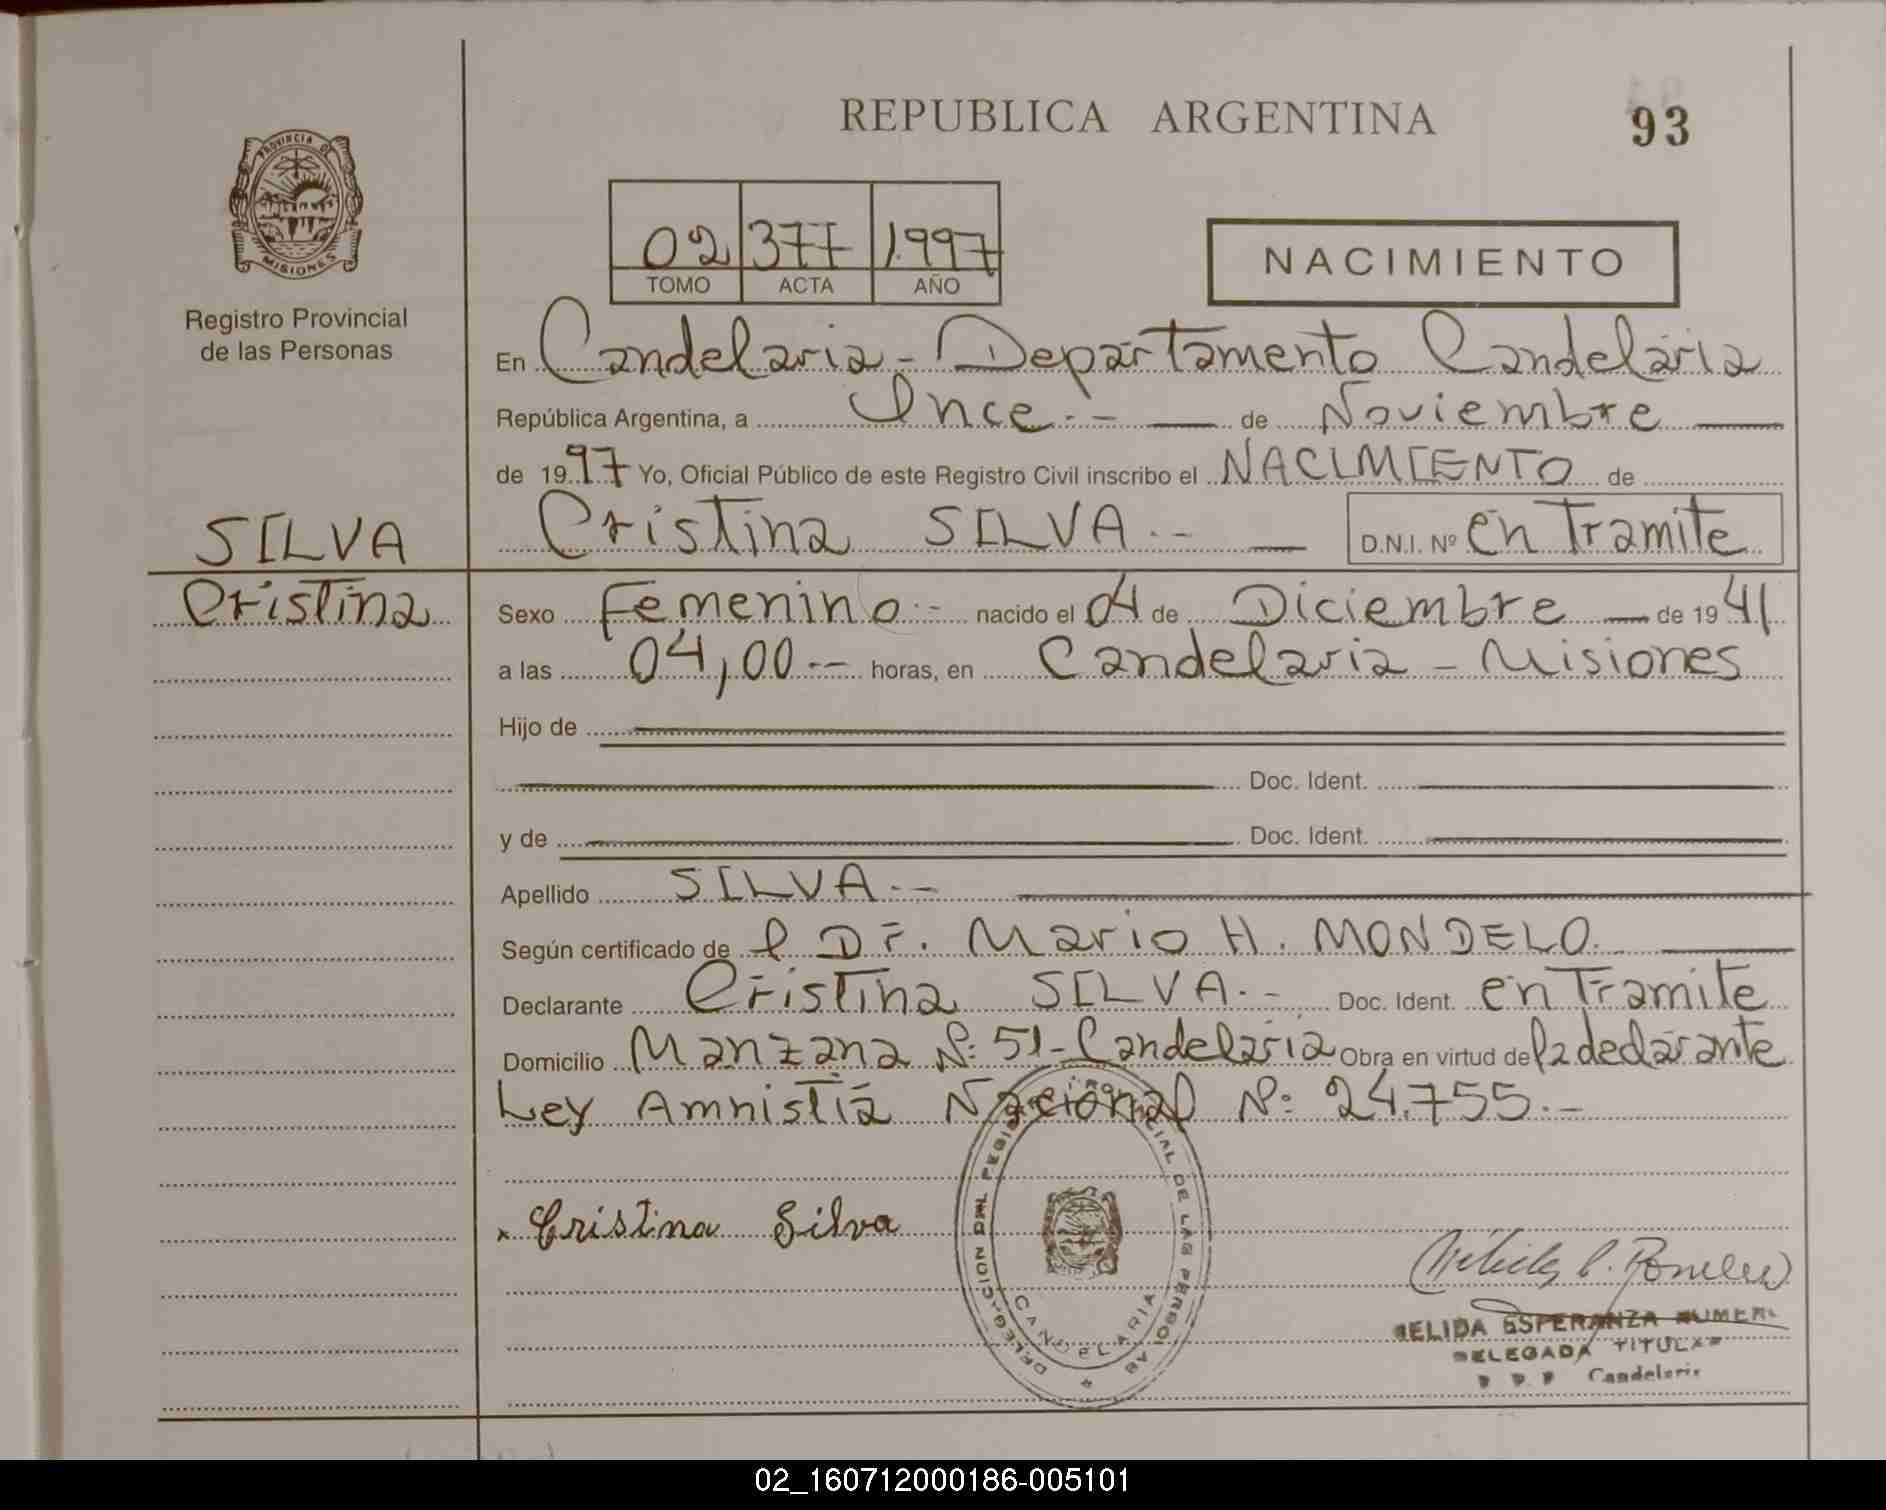 REPUBLICA ARGENTINA
93
PROVINCIA DE
MISIONES
Registro Provincial
de las Personas
02 377 1.997
TOMO ACTA AÑO
NACIMIENTO
En Candelaria - Departamento Candelaria
República Argentina, a Once.- de Noviembre
de 1997 Yo, Oficial Público de este Registro Civil inscribo el NACIMIENTO de
SILVA
Cristina SILVA.- D.N.I. Nº en Tramite
Cristina
Sexo Femenino.- nacido el 04 de Diciembre de 1941
a las 04,00.-- horas, en Candelaria - Misiones
Hijo de
Doc. Ident.
y de Doc. Ident.
Apellido SILVA.-
Según certificado de l Dr. Mario H. MONDELO.
Declarante Cristina SILVA.- Doc. Ident. en Tramite
Domicilio Manzana Nº: 51 - Candelaria Obra en virtud de la declarante
Ley Amnistia Nacional Nº: 24.755.-
x Cristina Silva
DELEGACION DEL REGISTRO PROVINCIAL DE LAS PERSONAS
CANDELARIA
ESPERANZA
DELEGADA TITULAR
Candelaria
02_160712000186-005101